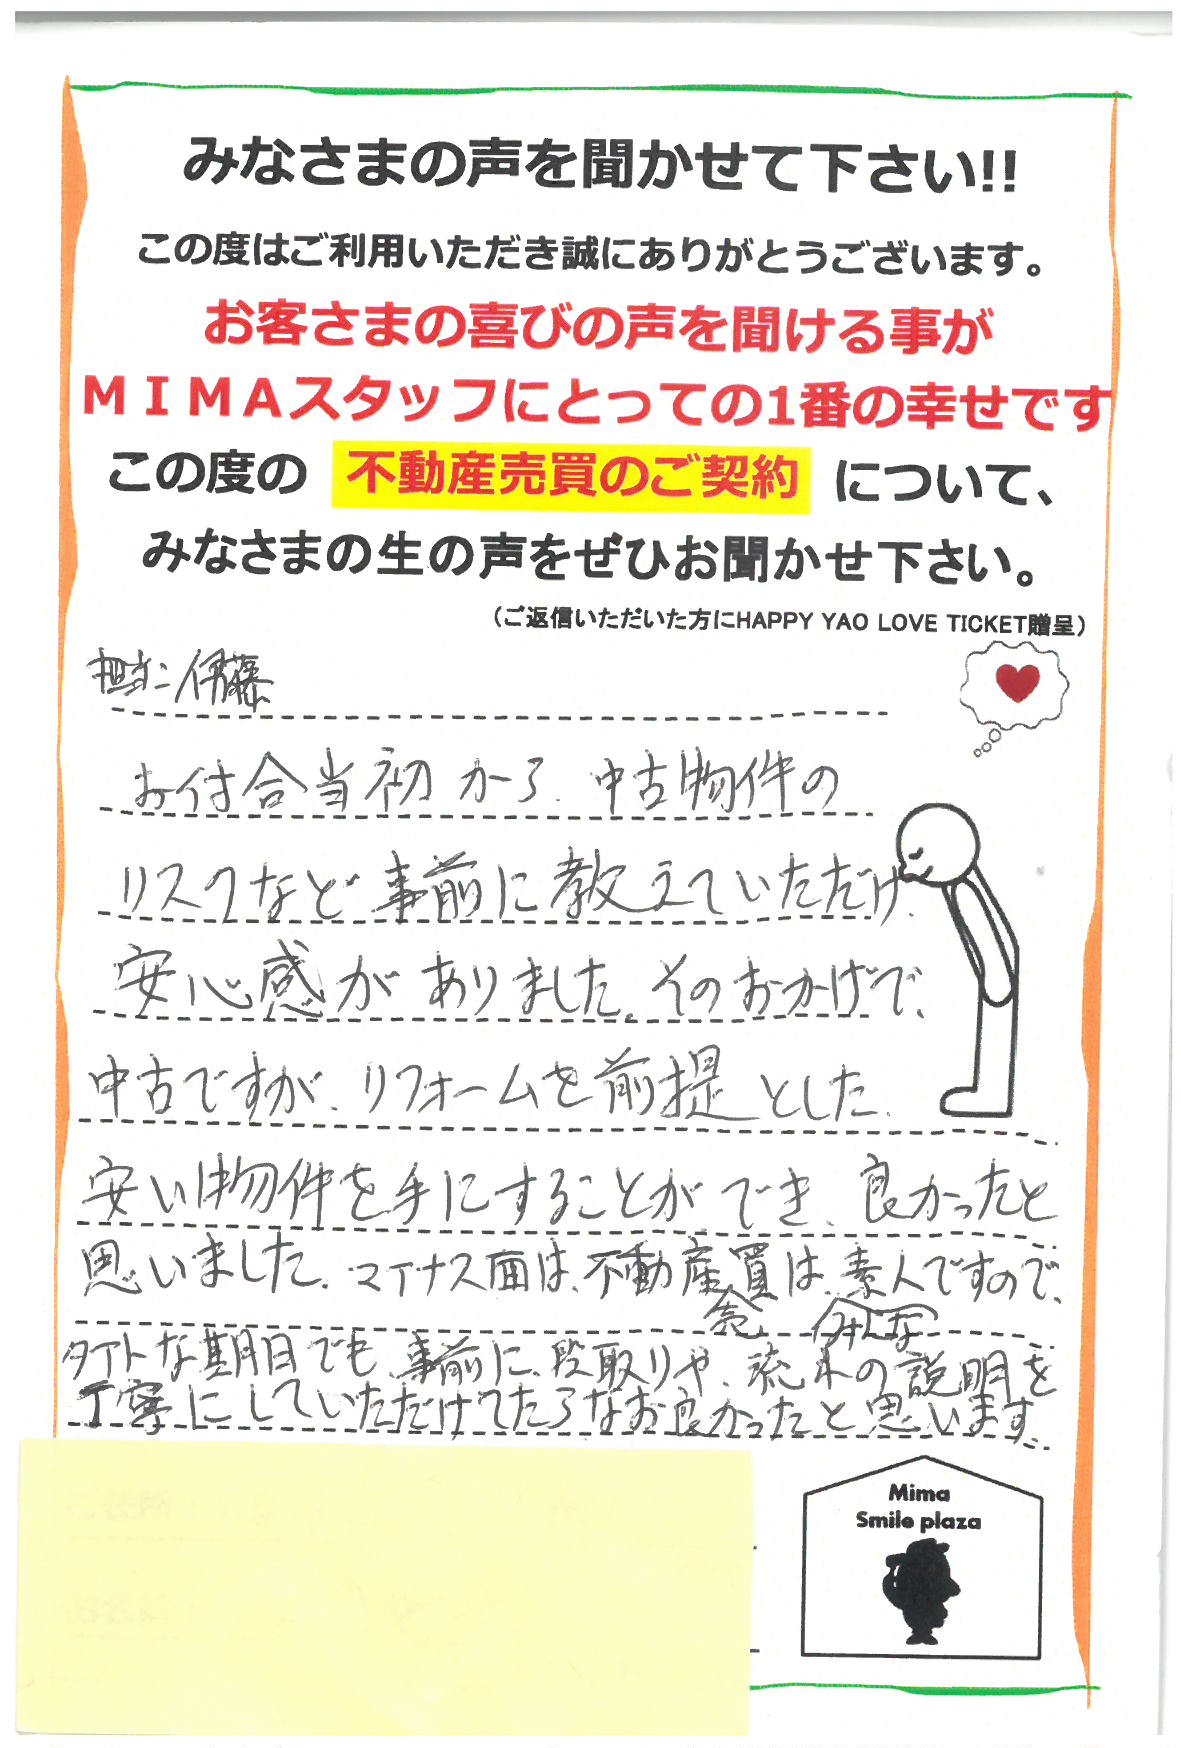 みなさまの声を聞かせて下さい!!
この度はご利用いただき誠にありがとうございます。
お客さまの喜びの声を聞ける事が
ＭＩＭＡスタッフにとっての1番の幸せです
この度の 不動産売買のご契約 について、
みなさまの生の声をぜひお聞かせ下さい。
（ご返信いただいた方にHAPPY YAO LOVE TICKET贈呈）
担当：伊藤
お付合当初から、中古物件の
リスクなど事前に教えていただけ、
安心感がありました。そのおかげで、
中古ですが、リフォームを前提とした、
安い物件を手にすることができ、良かったと
思いました。マイナス面は、不動産買は、素人ですので、
売 みんな
タイトな期日でも、事前に、段取りや、流れの説明を
丁寧にしていただけてたらなお良かったと思います。
Mima
Smile plaza